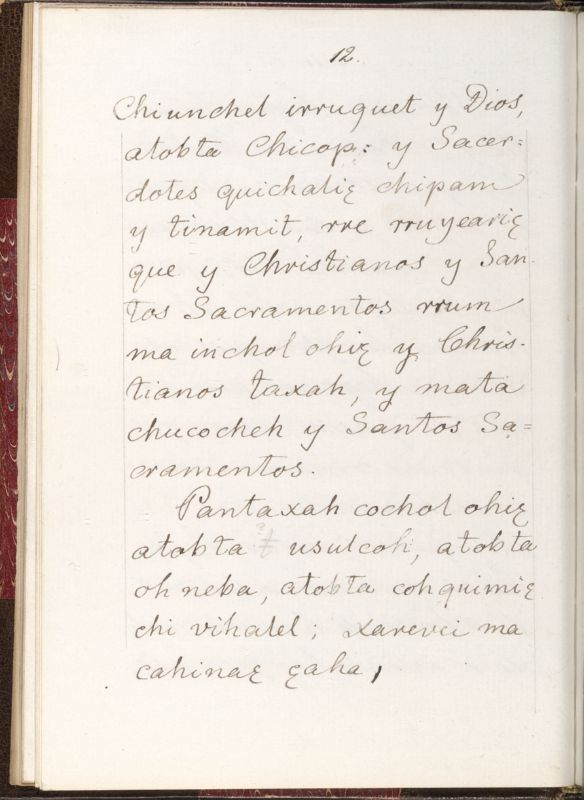 12.
Chiunchel irruquet y Dios,
atobta Chicop: y Sacer:
dotes quichaliꜫ chipam
y tinamit, rre rruyeariꜫ
que y Christianos y San-
tos Sacramentos rrum
ma inchol ohiꜫ y Chris-
tianos taxah, y mata
chucocheh y Santos Sa=
cramentos.
Pantaxah cochol ohiꜫ
atobta usulcoh, atobta
oh neba, atobta cohquimiꜫ
chi vihalel; xarevei ma
cahinaꜫ ꜫaha,